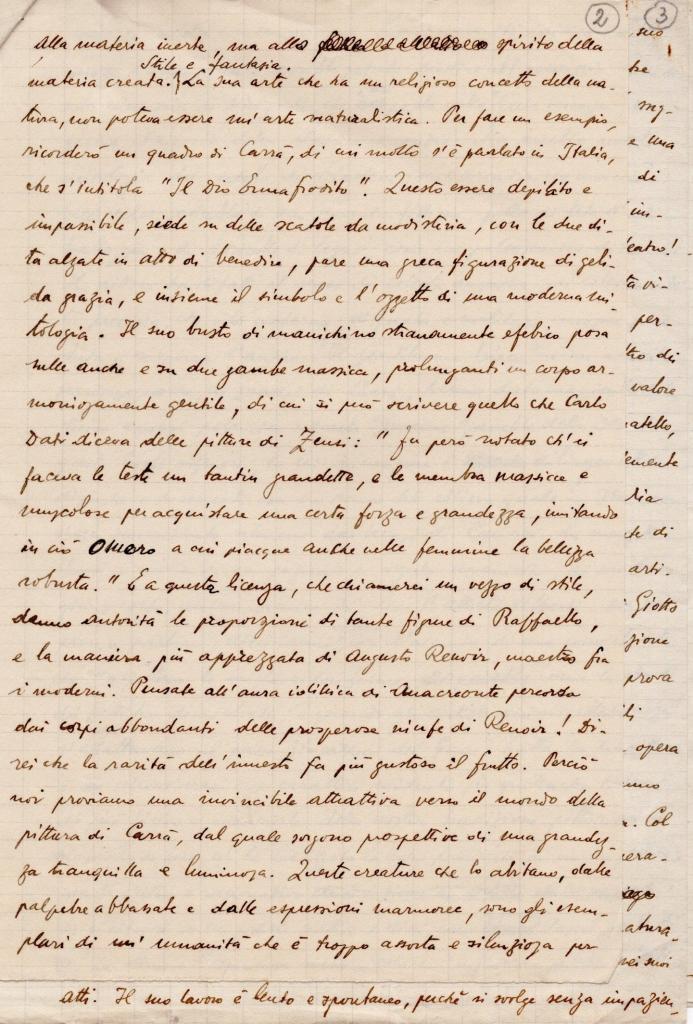 2 3
alla materia inerte, ma allo spirito della
Stile e fantasia.
materia creata. } La sua arte che ha un religioso concetto della na-
tura, non poteva essere un'arte naturalistica. Per fare un esempio,
ricorderò un quadro di Carrà, di cui molto s'è parlato in Italia,
che s'intitola "Il Dio Ermafrodito". Questo essere depilato e
impassibile, siede su delle scatole da modisteria, con le due di-
ta alzate in atto di benedire, pare una greca figurazione di geli-
da grazia, e insieme il simbolo e l'oggetto di una moderna mi-
tologia. Il suo busto di manichino stranamente efebico posa
sulle anche e su due gambe massicce, prolunganti un corpo ar-
moniosamente gentile, di cui si può scrivere quello che Carlo
Dati diceva delle pitture di Zeusi: " fu però notato ch'ei
faceva le teste un tantin grandette, e le membra massicce e
muscolose per acquistare una certa forza e grandezza, imitando
in ciò Omero a cui piacque anche nelle femmine la bellezza
robusta." E a questa licenza, che chiamerei un vezzo di stile,
danno autorità le proporzioni di tante figure di Raffaello,
e la maniera più apprezzata di Augusto Renoir, maestro fra
i moderni. Pensate all'aura idillica di Anacreonte percorsa
dai corpi abbondanti delle prosperose ninfe di Renoir! Di-
rei che la rarità dell'innesto fa più gustoso il frutto. Perciò
noi proviamo una invincibile attrattiva verso il mondo della
pittura di Carrà, dal quale sorgono prospettive di una grandez-
za tranquilla e luminosa. Queste creature che lo abitano, dalle
palpebre abbassate e dalle espressioni marmoree, sono gli esem-
plari di un'umanità che è troppo assorta e silenziosa per
atti. Il suo lavoro è lento e spontaneo, perchè si svolge senza impazien-
suo
e una
di
im-
eatro!
tà vi-
per-
tto di
valore
atello,
emente
te di
arti-
Giotto
zione
prova
opera
Col
era-
atura-
nei suoi